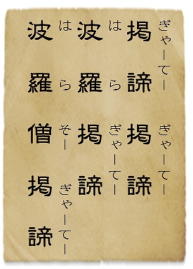 掲諦 掲諦
ぎゃーてー ぎゃーてー
波羅掲諦
はらぎゃーてー
波羅僧掲諦
はらそーぎゃーてー